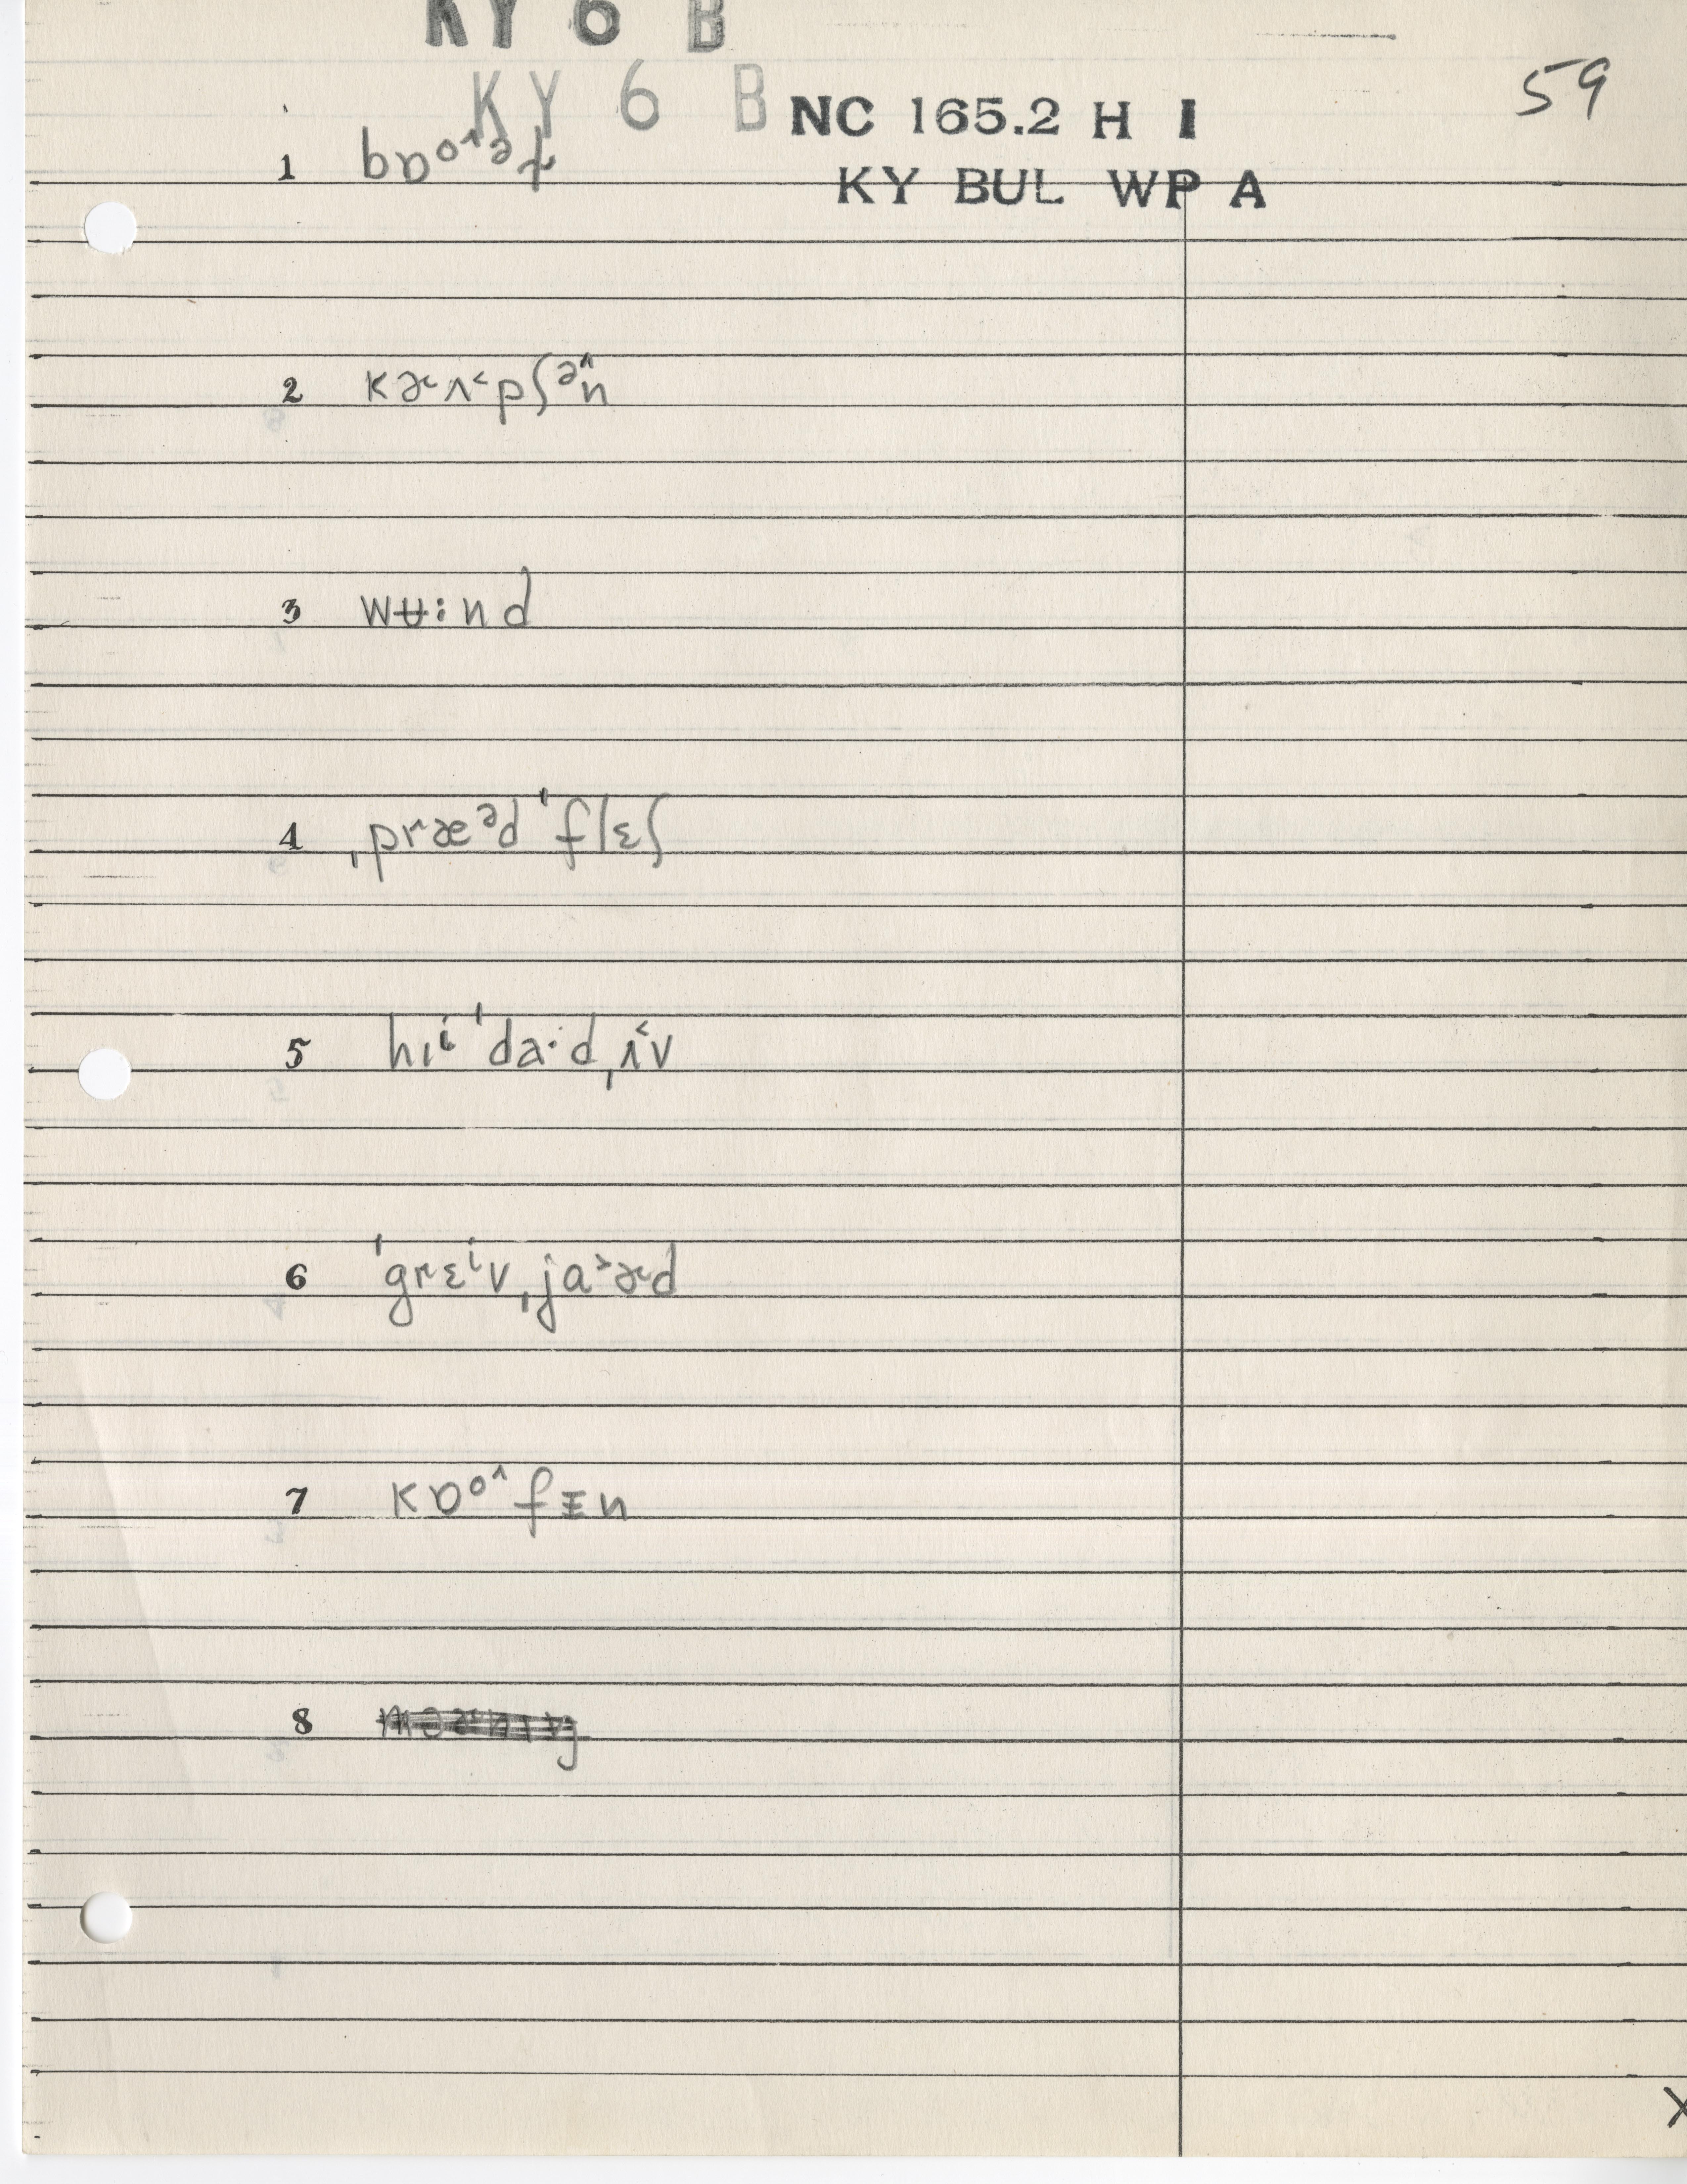 KY 6 B
KY 6 B
NC 165.2 H I
59
KY BUL WP A
1 bɒoˆɚt
2 kɚʌ˃pʃə̃n
3 wʉ:nd
4 ˌpræᵊd ˈflɛʃ
5 hɪⁱ ˈda·dˌɪ˂v
6 ˈgrɛⁱvˌja˃ɚd
7 kɒoˆfɪ̵n
8
X